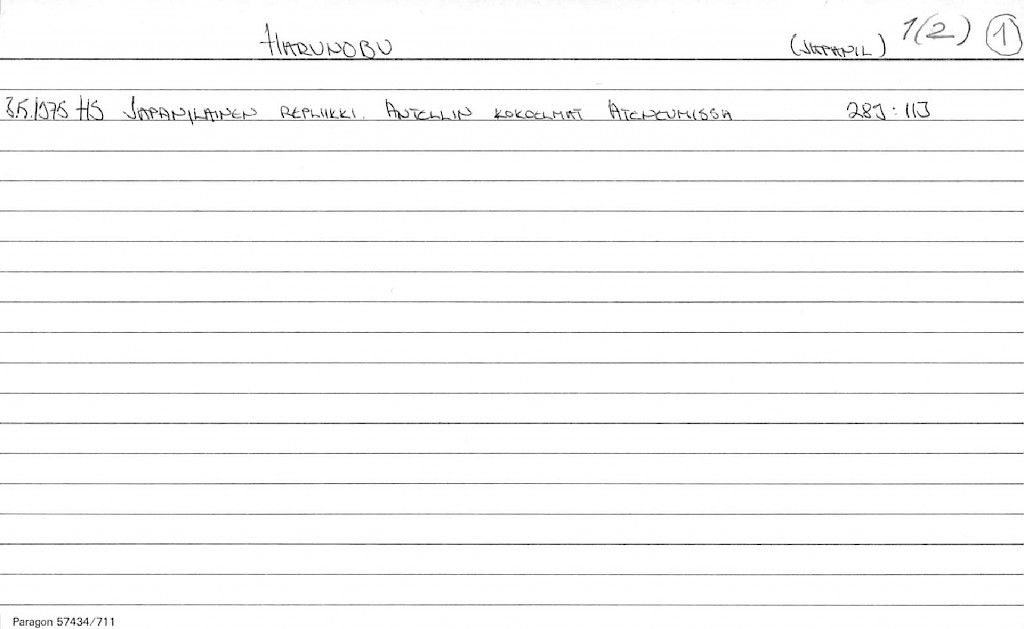 HARUNOBU (JAPANIL) 1(2) 1
3.5.1975 HS JAPANILAINEN REPLIIKKI. ANTELLIN KOKOELMAT ATENEUMISSA 289:119
Paragon 57434/711